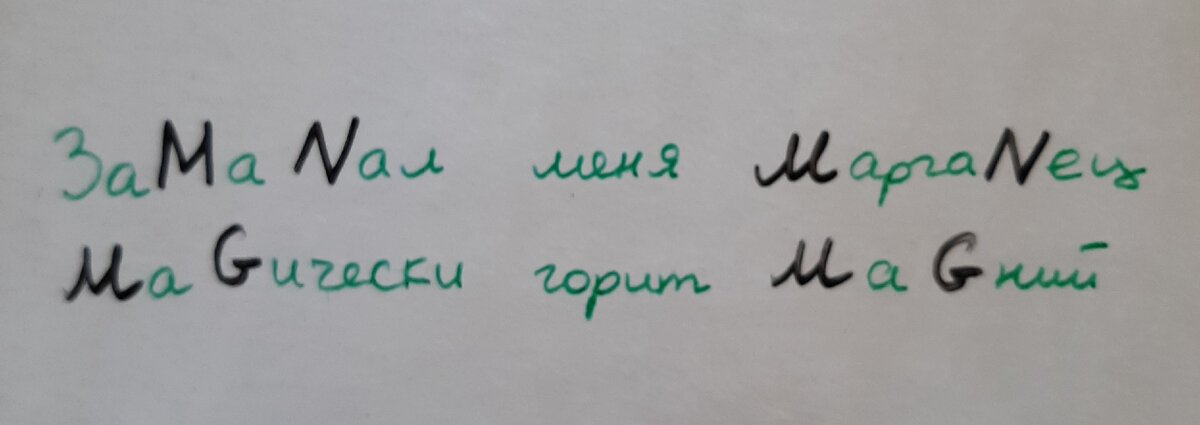 ЗаМаNал меня МаргаNец
МаGически горит МаGний